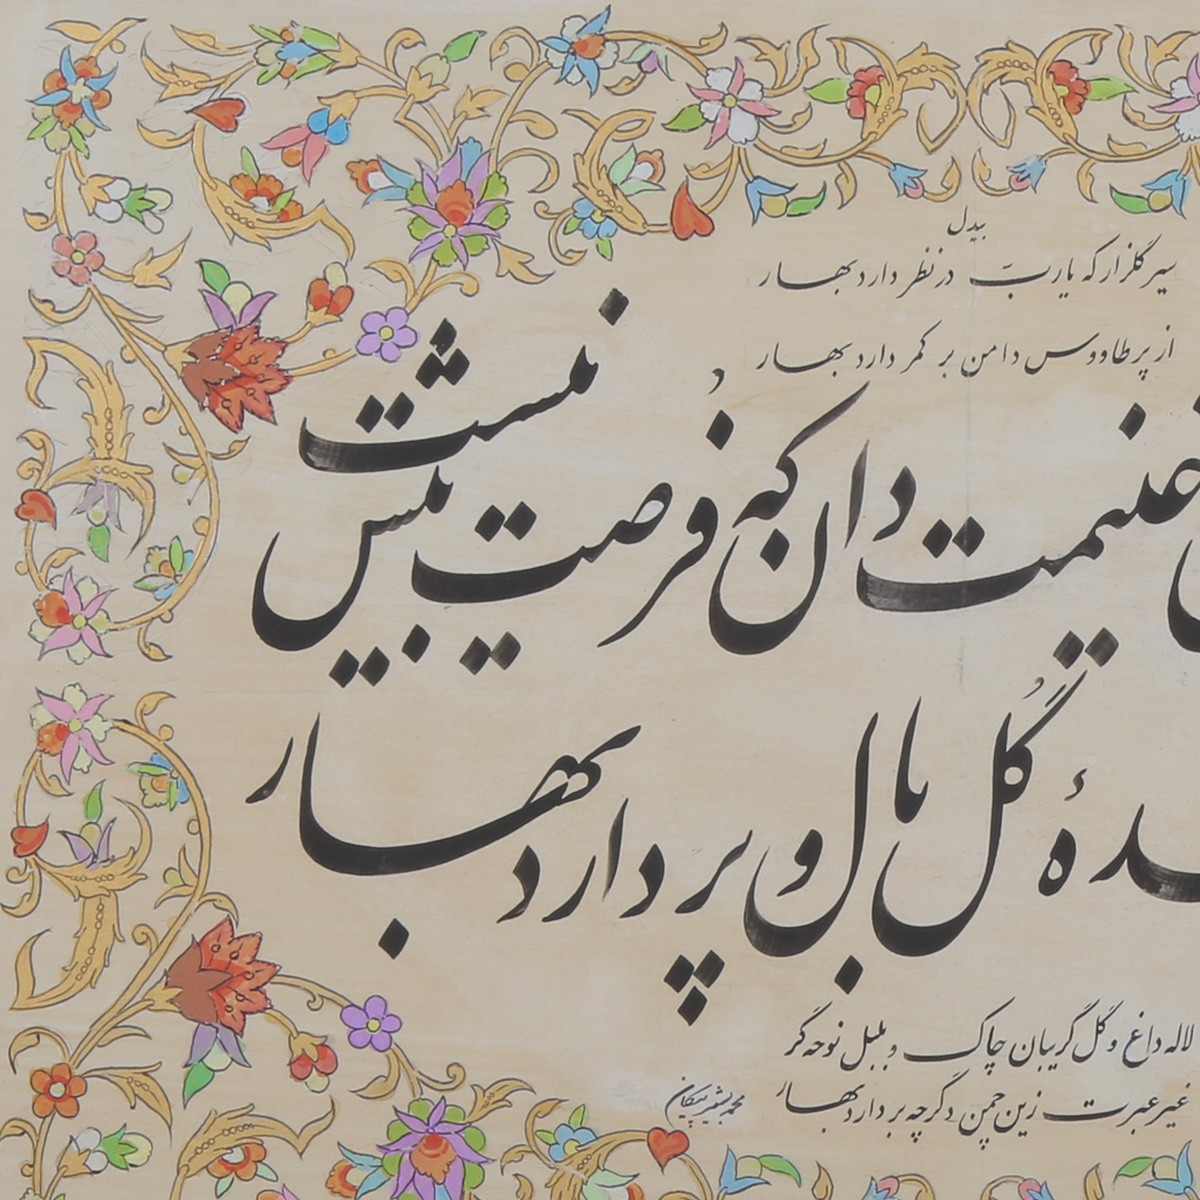 بیدل
سیر گلزار که یارب در نظر دارد بهار
از پر طاووس دامن بر کمر دارد بهار
غنیمت دان که فرصت بیش نیست
ده گل بال و پر دارد بهار
لاله داغ و گل گریبان چاک و بلبل نوحه گر
غیر عبرت زین چمن دگر چه بر دارد بهار